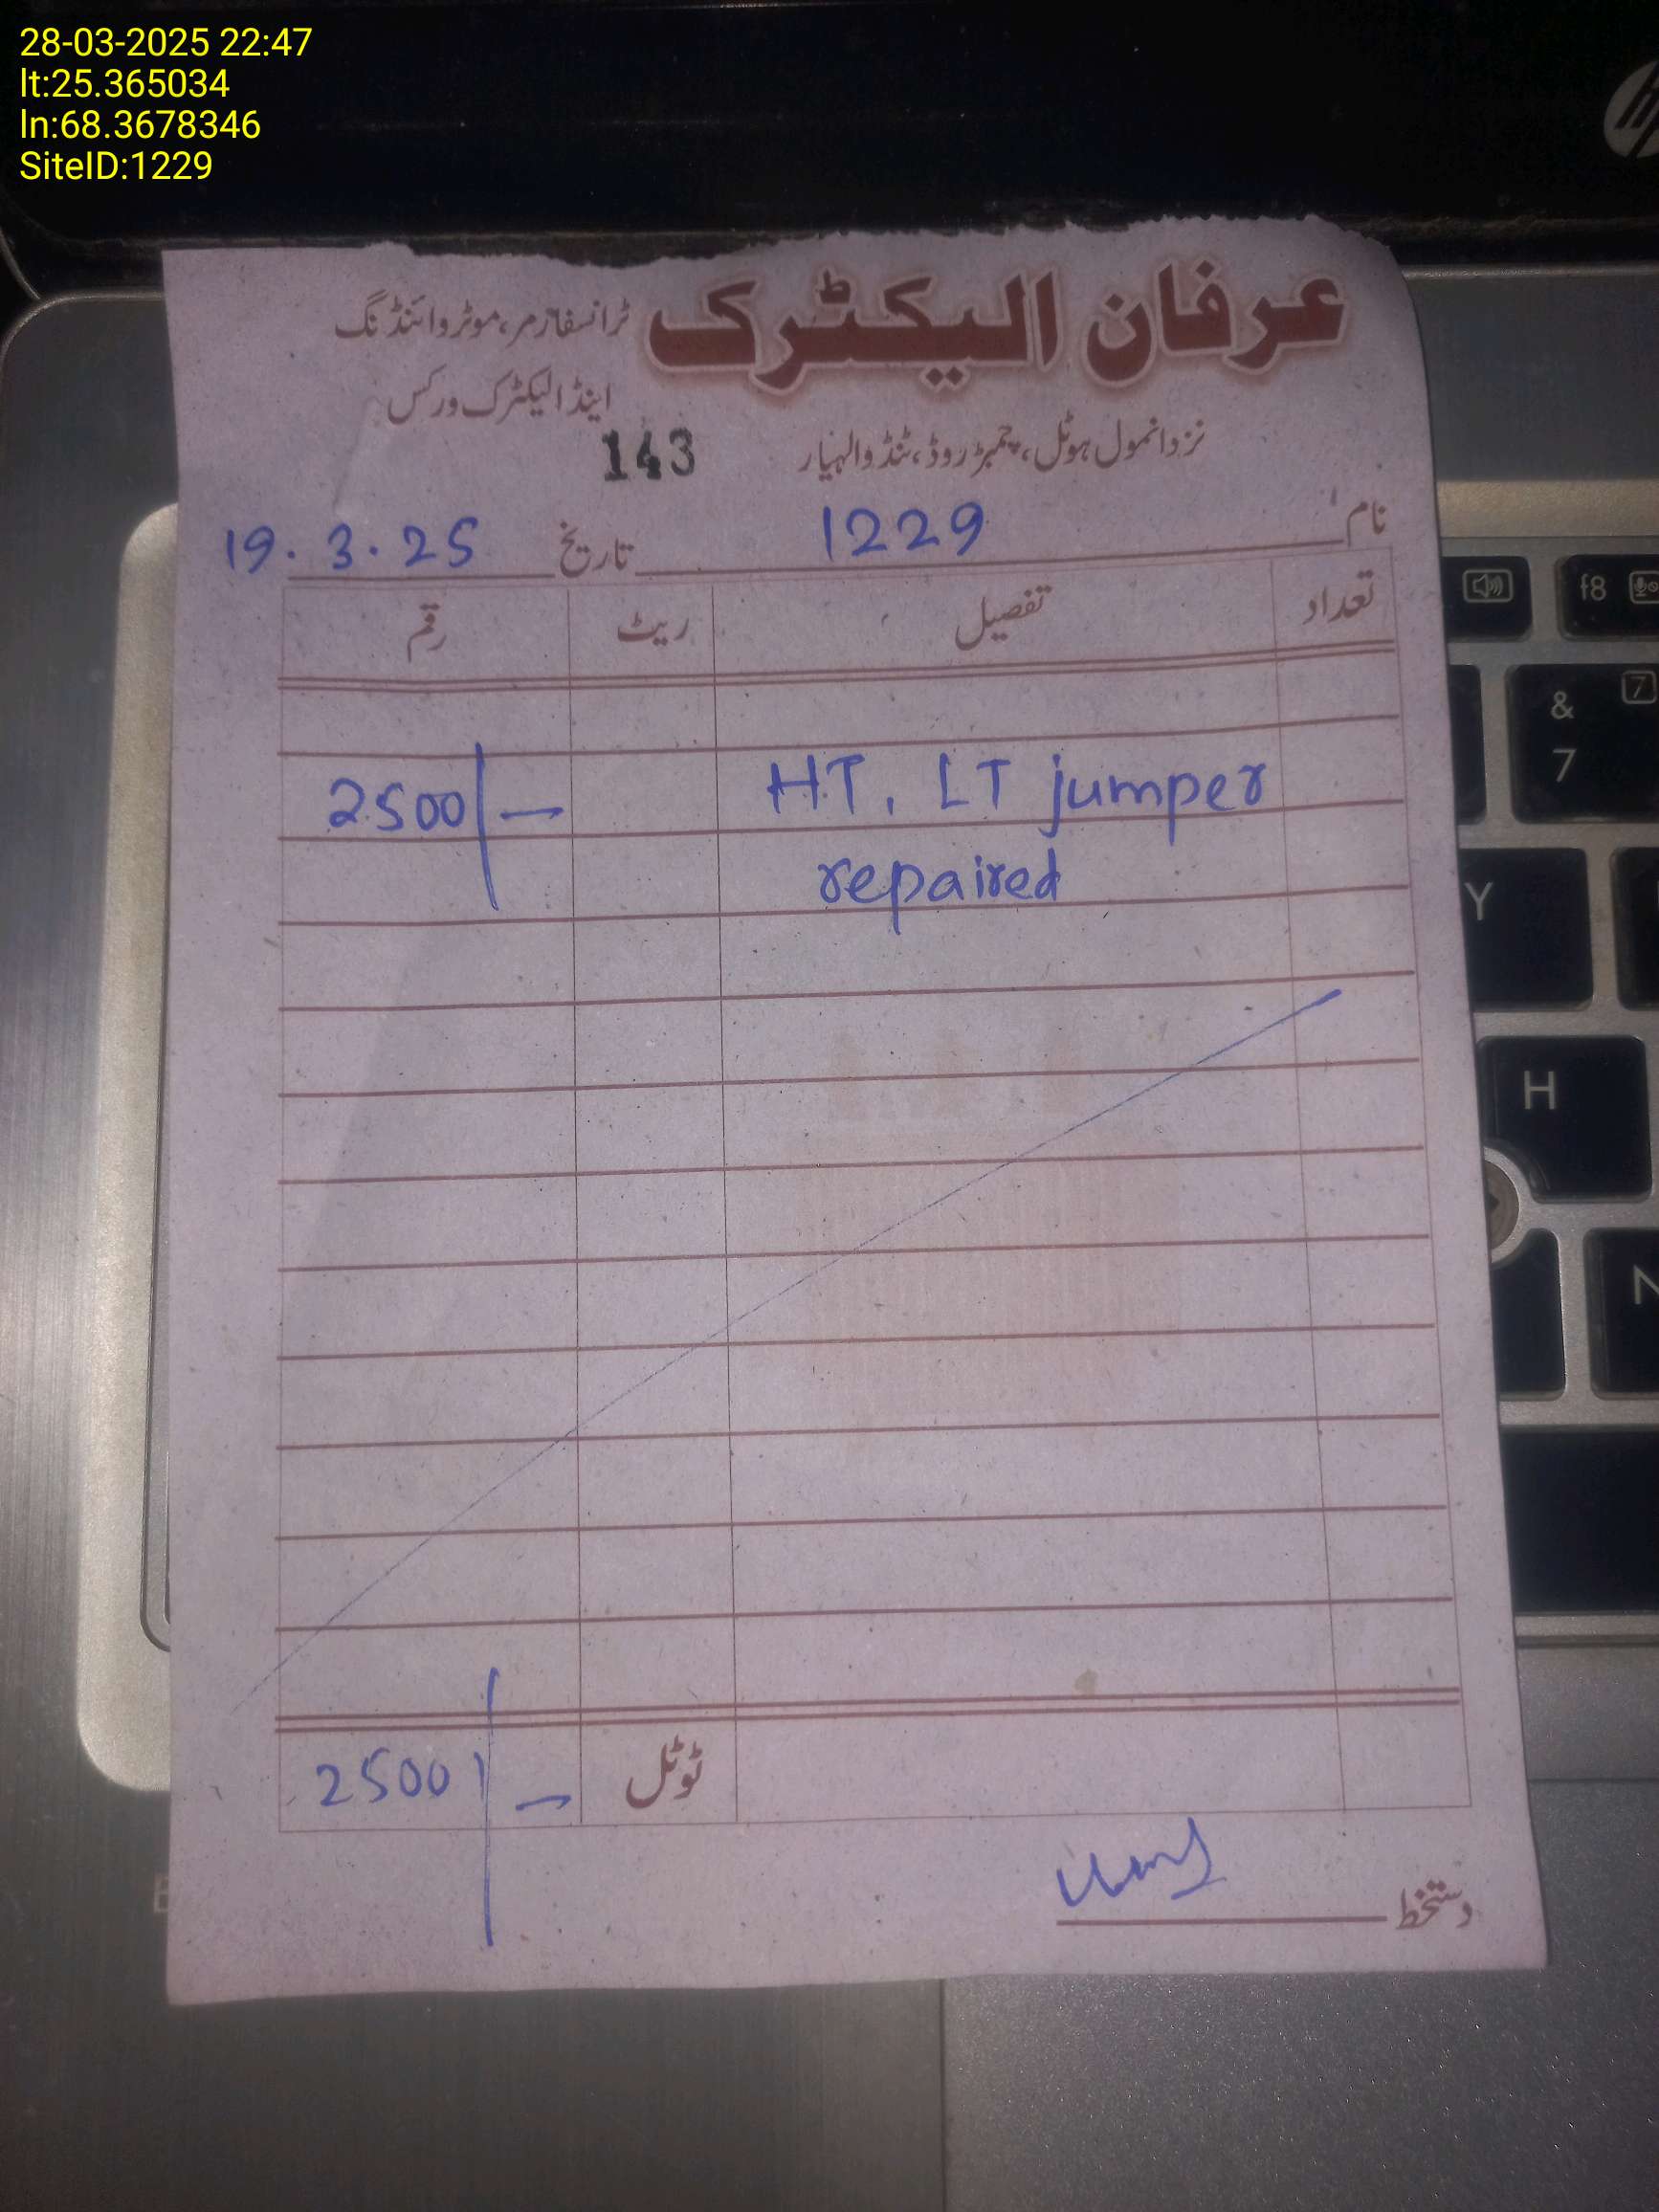 28-03-2025 22:47
lt:25.365034
ln:68.3678346
SiteID:1229
عرفان الیکٹرک
ٹرانسفارمر، موٹر وائنڈنگ
اینڈ الیکٹرک ورکس
نزد انمول ہوٹل، چمبڑ روڈ، ٹنڈوالہیار
143
نام 1229 تاریخ 19.3.25
تعداد تفصیل ریٹ رقم
HT, LT jumper 2500/-
repaired
ٹوٹل 2500/-
دستخط
hp
f8
&
7
7
Y
H
N